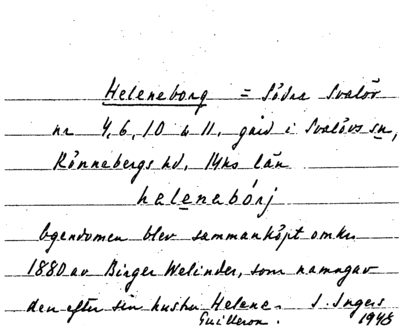 Heleneborg = Södra Svalöv
nr 4, 6, 10 o 11, gård i Svalövs sn,
Rönnebergs hd, Mhs län
helenabórj
Egendomen blev sammanköpt omkr
1880 av Birger Welinder, som namngav
den efter sin hustru Helene. S. Ingers
Guilleron. 1948